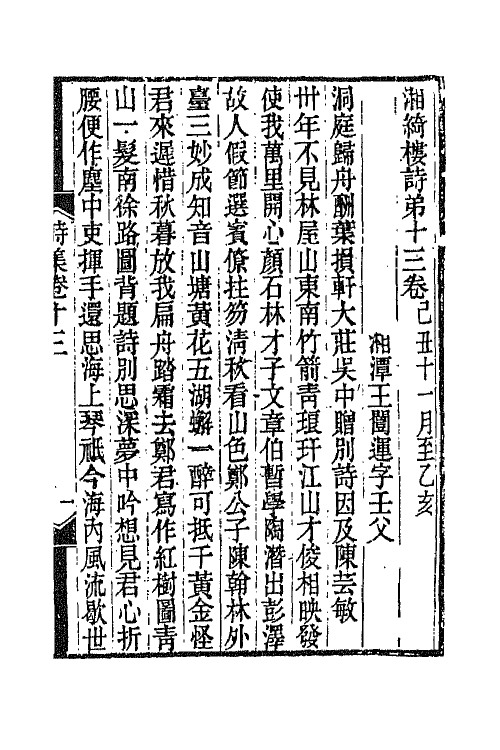 湘綺樓詩弟十三卷己丑十一月至乙亥
湘潭王闓運字壬父
洞庭歸舟酬葉損軒大莊吳中贈別詩因及陳芸敏
卅年不見林屋山東南竹箭靑琅玕江山才俊相映發
使我萬里開心顏石林才子文章伯暫學陶潛出彭澤
故人假節選賓僚拄笏淸秋看山色鄭公子陳翰林外
臺三妙成知音山塘黃花五湖蠏一醉可抵千黃金怪
君來遲惜秋暮放我扁舟踏霜去鄭君寫作紅樹圖靑
山一髮南徐路圖背題詩別思深夢中吟想見君心折
腰便作塵中吏揮手還思海上琴祗今海內風流歇世
詩集卷十三
一